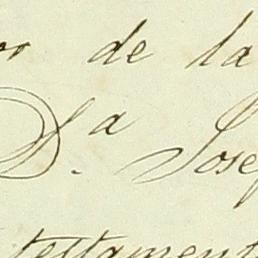 de la
D.ª Jose
testament